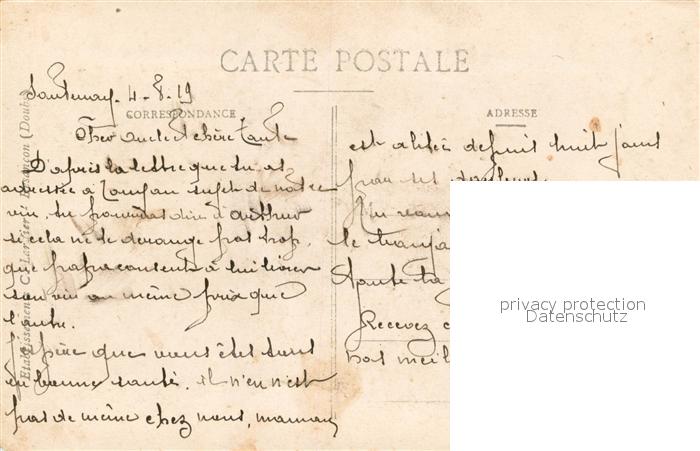 CARTE POSTALE
Santenay. 4-8-19
CORRESPONDANCE
ADRESSE
Cher oncle et chère tante
D'après la lettre que tu as
adressée à sujet de notre
vin, tu pourras dire à Arthur
si cela ne te dérange pas trop,
que papa consent à lui livrer
son vin au même prix que
l'autre.
J'espère que vous êtes tous
en bonne santé, il n'en n'est
pas de même chez nous, maman
est alitée depuis huit jours
par ses douleurs.
le
toute ta
Recevez
nos meil
Etablissements C. Lardier Besançon (Doubs)
privacy protection
Datenschutz